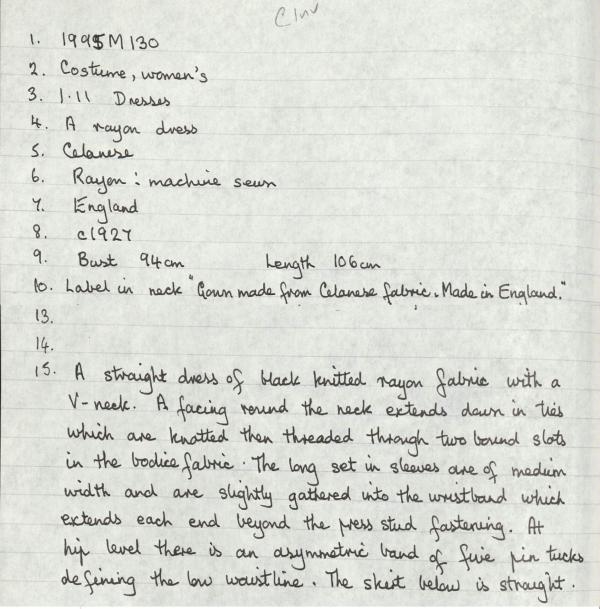 C Inv
1. 1995M130
2. Costume, women's
3. 1.11 Dresses
4. A rayon dress
5. Celanese
6. Rayon : machine sewn
7. England
8. c1927
9. Bust 94cm Length 106cm
10. Label in neck "Gown made from Celanese fabric. Made in England."
13.
14.
15. A straight dress of black knitted rayon fabric with a
V-neck. A facing round the neck extends down in ties
which are knotted then threaded through two bound slots
in the bodice fabric. The long set in sleeves are of medium
width and are slightly gathered into the wristband which
extends each end beyond the press stud fastening. At
hip level there is an asymmetric band of five pin tucks
defining the low waistline. The skirt below is straight.